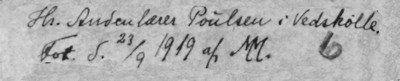 Hr. Andenlærer Poulsen i Vedskölle.
Fot. d. 23/9 1919 af MM. 6